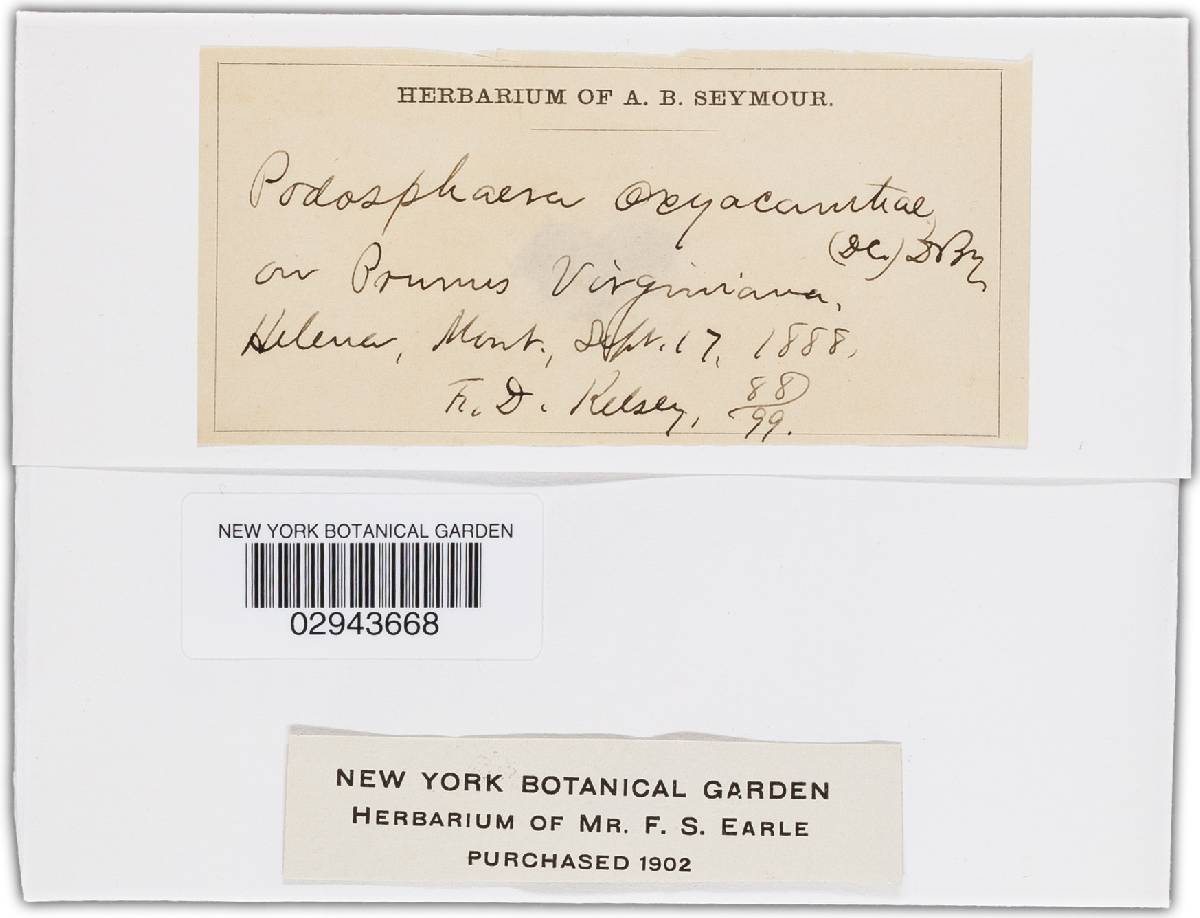 HERBARIUM OF A. B. SEYMOUR.
Podosphaera Oxyacanthae
(DC.) DBy,
on Prunus Virginiana,
Helena, Mont., Sept. 17, 1888,
F. D. Kelsey, 88/99.
NEW YORK BOTANICAL GARDEN
02943668
NEW YORK BOTANICAL GARDEN
HERBARIUM OF MR. F. S. EARLE
PURCHASED 1902